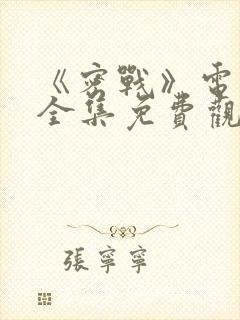 《密戰》電
全集免費觀
張寧寧